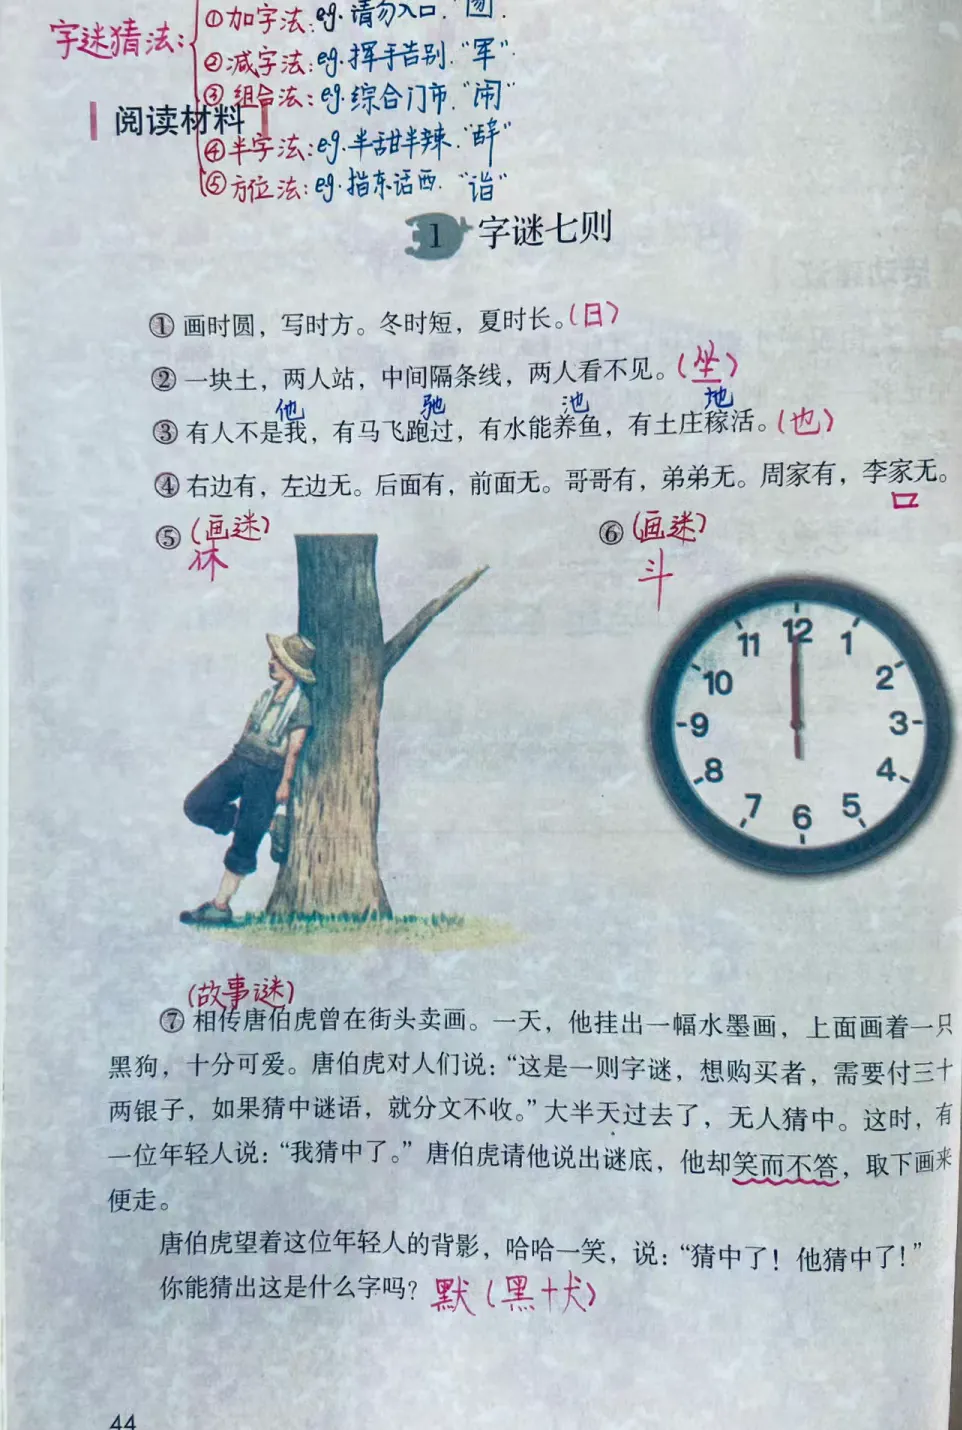 字迷猜法:
①加字法:eg.请勿入口."囫".
②减字法:eg.挥手告别."军".
③组合法:eg.综合门市."闹"
阅读材料
④半字法:eg.半甜半辣."辞"
⑤方位法:eg.指东话西."诣"
1 字谜七则
①画时圆，写时方。冬时短，夏时长。(日)
②一块土，两人站，中间隔条线，两人看不见。(坐)
他 驰 池 地
③有人不是我，有马飞跑过，有水能养鱼，有土庄稼活。(也)
④右边有，左边无。后面有，前面无。哥哥有，弟弟无。周家有，李家无。
口
⑤(画迷) ⑥(画迷)
休 斗
12
11 1
10 2
9 3
8 4
7 5
6
(故事谜)
⑦相传唐伯虎曾在街头卖画。一天，他挂出一幅水墨画，上面画着一只
黑狗，十分可爱。唐伯虎对人们说：“这是一则字谜，想购买者，需要付三十
两银子，如果猜中谜语，就分文不收。”大半天过去了，无人猜中。这时，有
一位年轻人说：“我猜中了。”唐伯虎请他说出谜底，他却笑而不答，取下画来
便走。
唐伯虎望着这位年轻人的背影，哈哈一笑，说：“猜中了！他猜中了！”
你能猜出这是什么字吗？默(黑+犬)
44